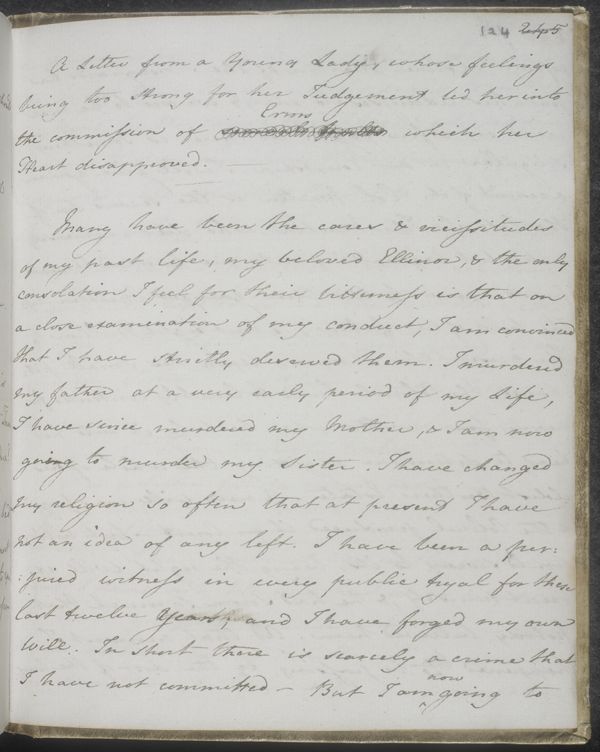 124 245
A Letter from a Young Lady, whose feelings
being too strong for her Judgement led her into
the commission of Errors which her
Heart disapproved.
Many have been the cares & vicissitudes
of my past life, my beloved Ellinor, & the only
consolation I feel for their bitterness is that on
a close examination of my conduct, I am convinced
that I have strictly deserved them. I murdered
my father at a very early period of my Life,
I have since murdered my Mother, & I am now
going to murder my Sister. I have changed
my religion so often that at present I have
not an idea of any left. I have been a per:
:jured witness in every public tryal for these
last twelve Years, and I have forged my own
Will. In short there is scarcely a crime that
I have not committed - But I am now going to